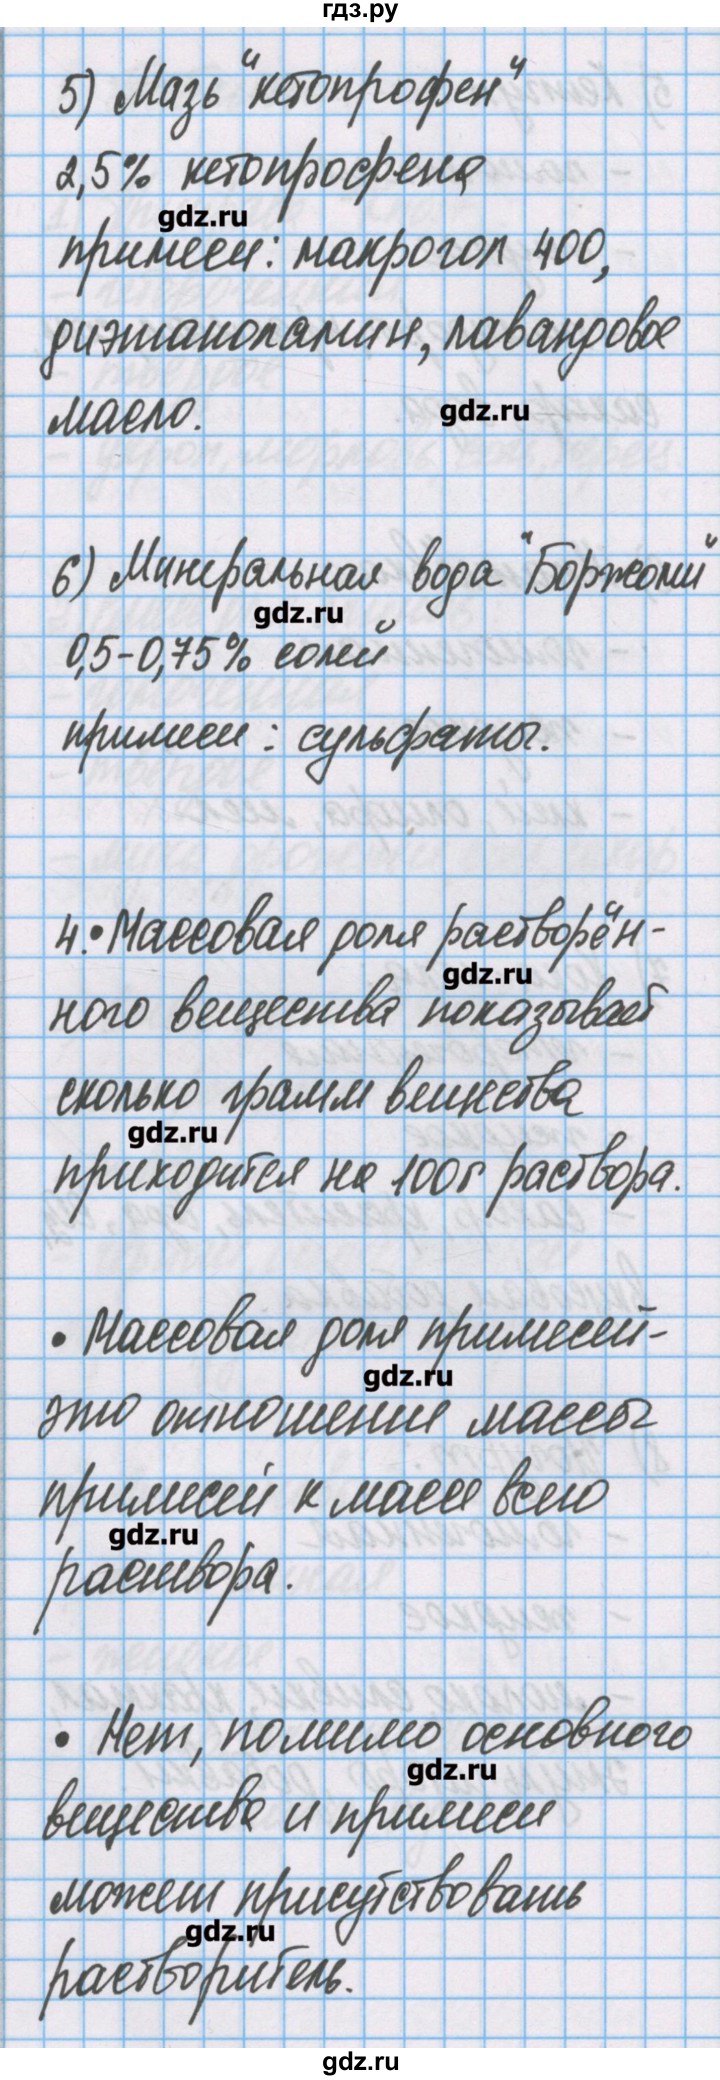 гдз.ру
5) Мазь "кетопрофен"
2,5% кетопрофена
gdz.ru
примеси: макрогол 400,
диэтаноламин, лавандовое
масло.
gdz.ru
6) Минеральная вода "Боржоми"
gdz.ru
0,5-0,75% солей
примеси: сульфаты.
4.• Массовая доля растворён-
gdz.ru
ного вещества показывает
сколько грамм вещества
gdz.ru
приходится на 100г раствора.
• Массовая доля примесей-
gdz.ru
это отношение массы
примесей к массе всего
gdz.ru
раствора.
• Нет, помимо основного
gdz.ru
вещества и примеси
может присутствовать
gdz.ru
растворитель.
gdz.ru